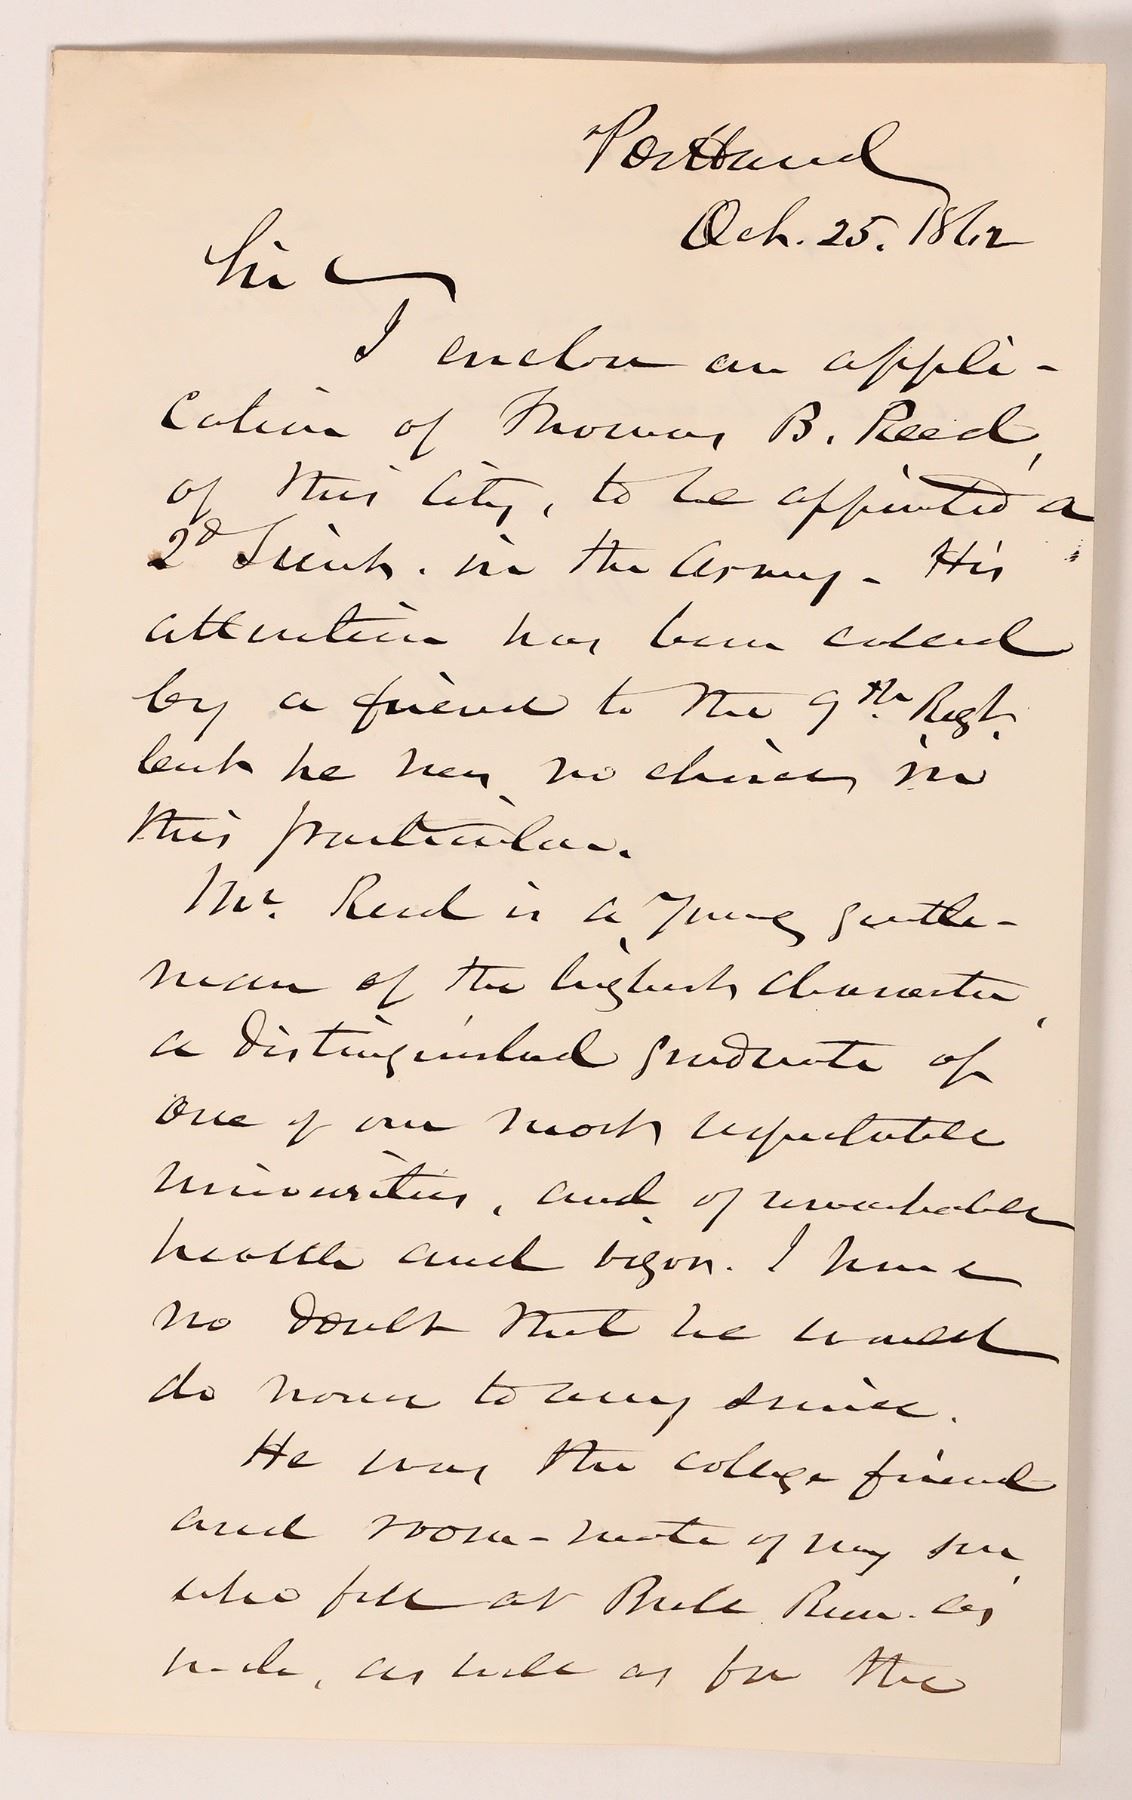 Portland
Oct. 25. 1862
Sir
I enclose an appli-
cation of Thomas B. Reed,
of this City, to be appointed a
2d Lieut. in the Army. His
attention has been called
by a friend to the 9th. Regt.
but he has no choice in
this particular.
Mr. Reed is a young gentle-
man of the highest character,
a distinguished graduate of
one of our most respectable
universities, and of remarkable
health and vigor. I have
no doubt that he would
do honor to any service.
He was the college friend
and room-mate of my son
who fell at Bull Run. As
such, as well as for the